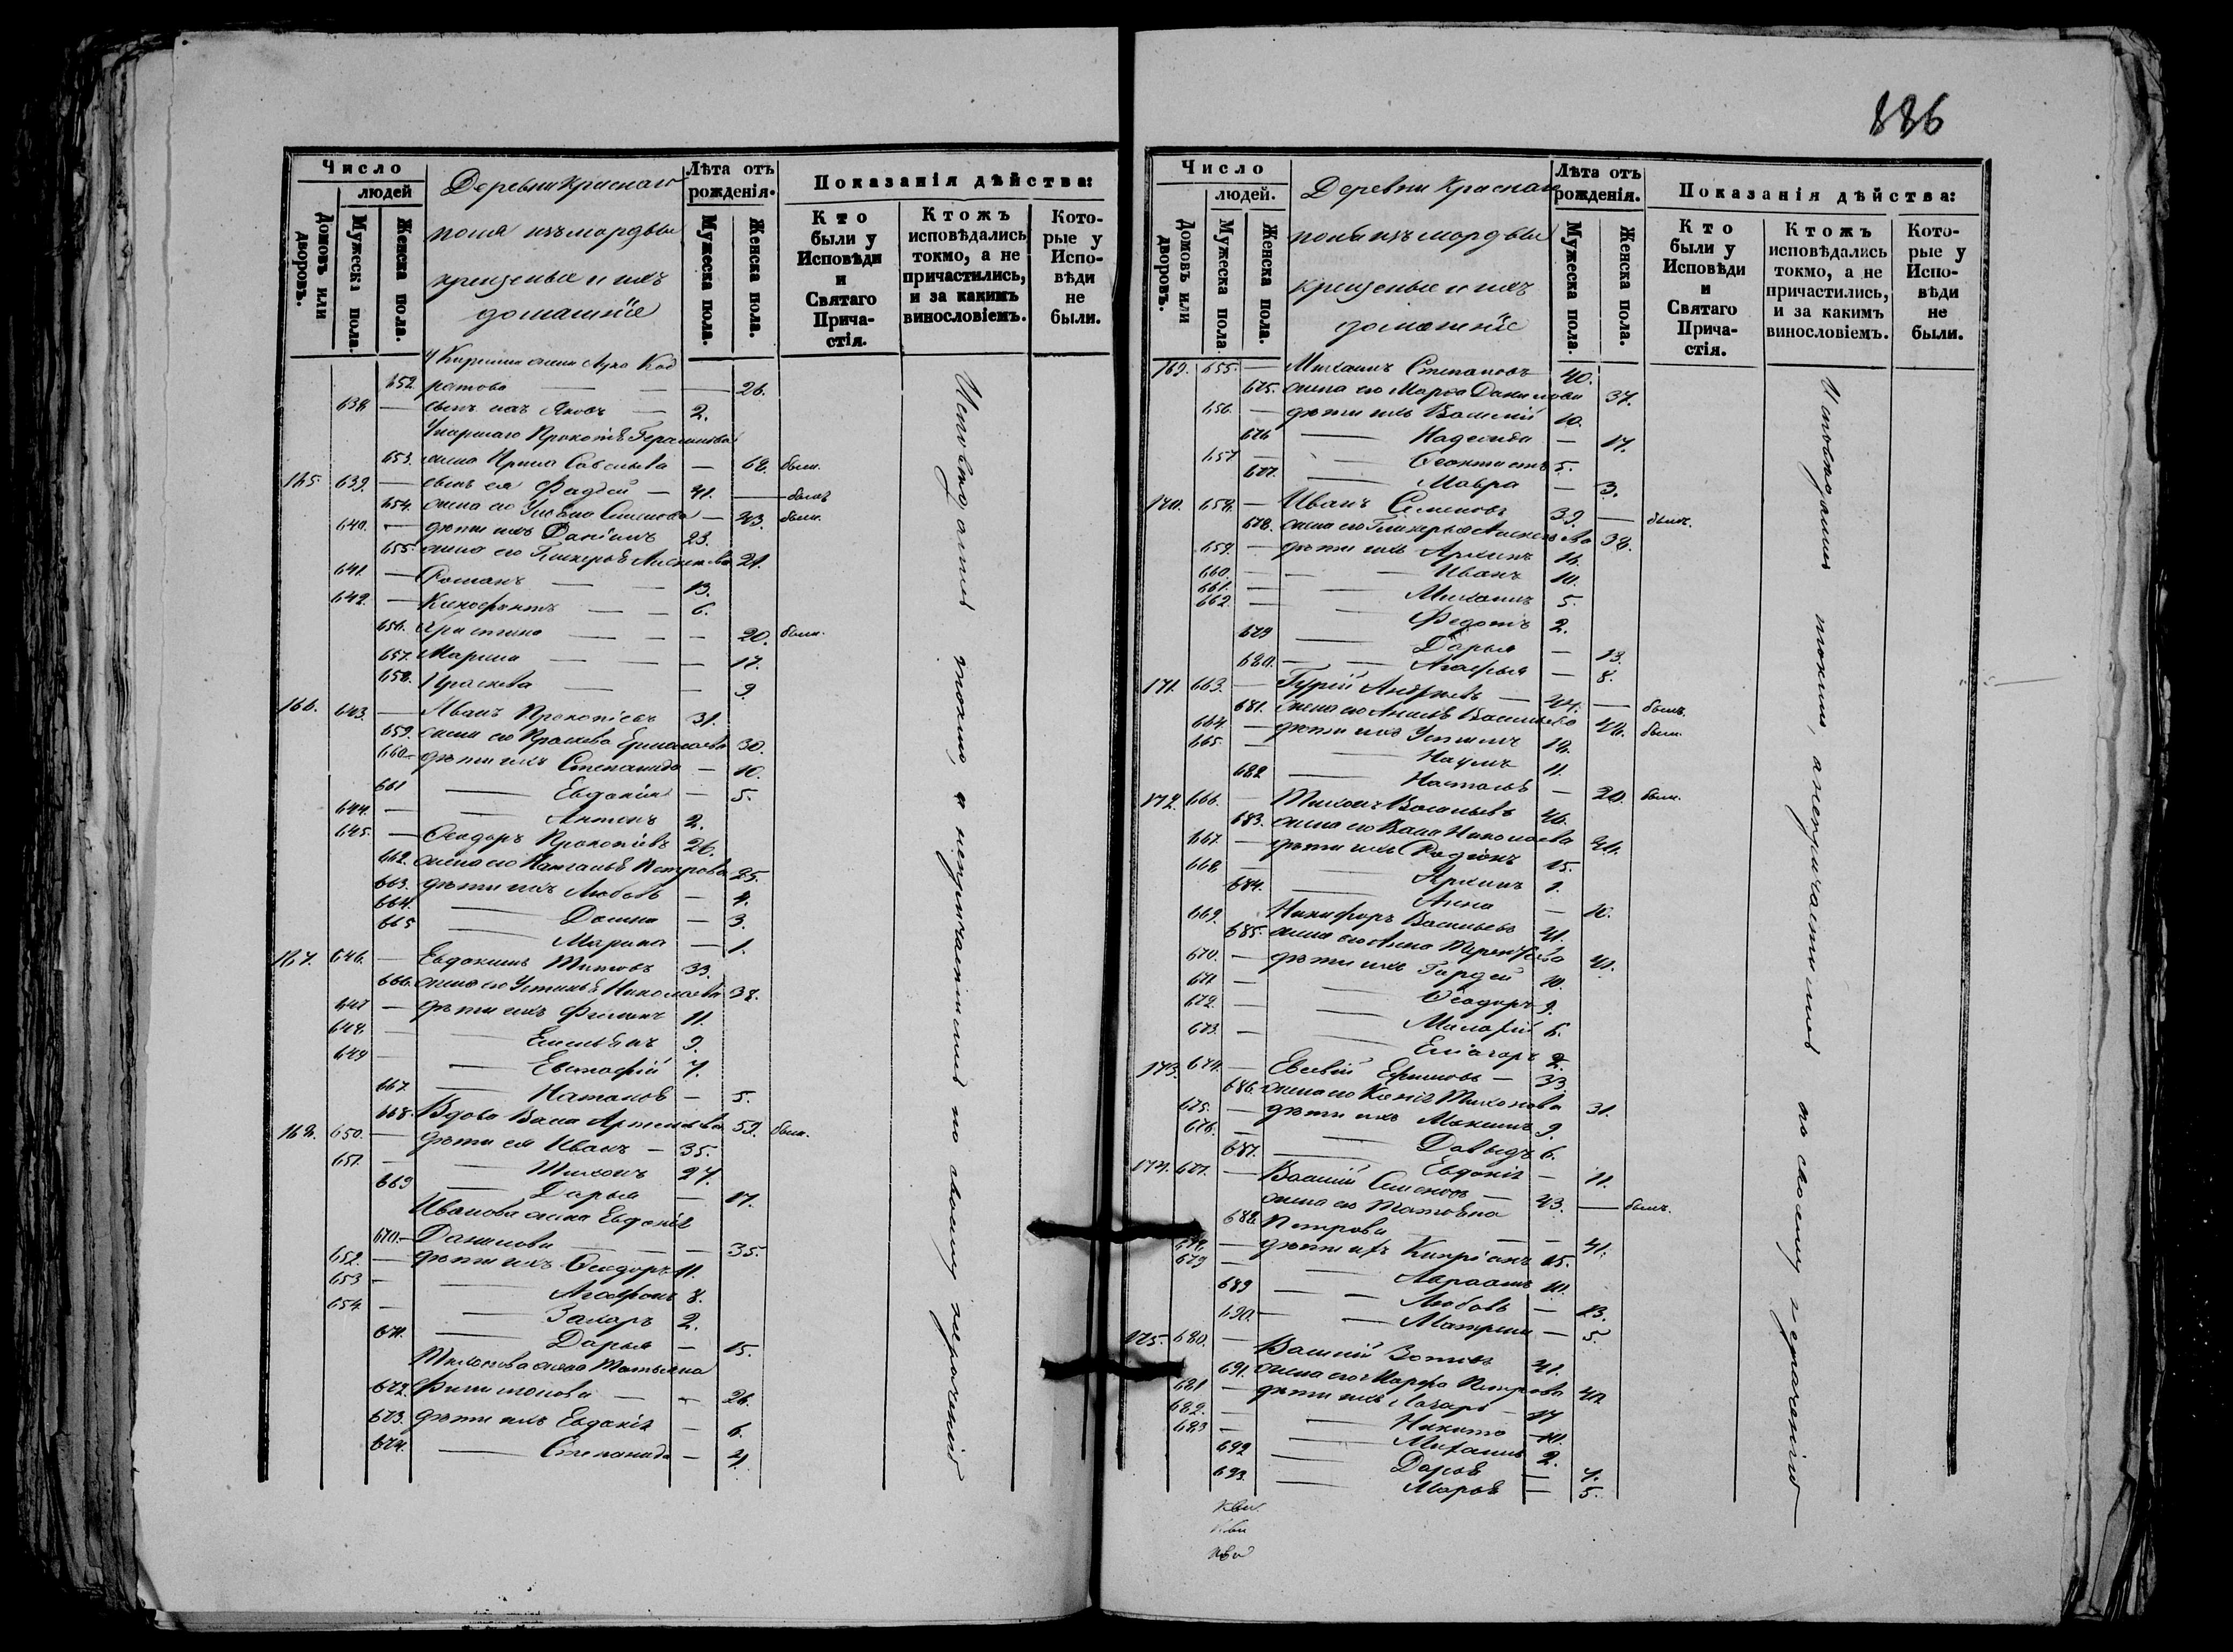 886
Число
людей
Домовъ или дворовъ.
Мужеска пола.
Женска пола.
Деревни Краснаго
изъ мордвы
крещеные и ихъ
домашніе
Лѣта отъ рожденія.
Мужеска пола.
Женска пола.
Показанія дѣйства:
Кто были у Исповѣди и Святаго Причастія.
Ктожъ исповѣдались токмо, а не причастились, и за какимъ винословіемъ.
Которые у Исповѣди не были.
652. — — 26.
638. — сынъ ихъ Яковъ — 2.
Умершаго
653. жена Ирина — 68. была.
165. 639. — сынъ ея Фаддей — 41. — былъ
654. жена его — 43. была.
640. — дѣти ихъ Даніилъ 23.
655. жена его 21.
641. — Романъ — — 13.
642. — Ксенофонтъ — — 6.
656. Христина — — — 20. была.
657. Марина — — — 17.
658. Праскева — — 9.
166. 643. — Иванъ Прокопіевъ 31.
659. жена его Праскева Ермолаева 30.
660. дѣти ихъ Степанида — 10.
661 — Евдокія — 5.
644. — — Антонъ 2.
645. — Ѳеодоръ Прокопіевъ 26.
662. жена его Петрова 25.
663. дѣти ихъ Любовь — 4.
664. — Домна — 3.
665 — Марина — 1.
167. 646. — Евдокимъ Титовъ 33.
666. жена его Устинья Николаева 38.
647 — дѣти ихъ Филипъ 11.
648. — Емельянъ 9.
649 — — Евстафій 7.
667. — Наталья — 5.
668. Вдова Васса 59. была.
168. 650. — дѣти ея Иванъ — 35.
651. — — Тихонъ 27.
669 — Дарья — 17.
Иванова жена Евдокія
670. Данилова — — 35.
652. — дѣти ихъ Ѳеодоръ 11.
653 — — Агафонъ 8.
654. — — Захаръ 2.
671. — Дарья — 15.
Тихонова жена Татьяна
672. Филимонова — — 26.
673. дѣти ихъ Евдокія — 6.
674. — Степанида — 4.
Исповѣдались токмо, а непричастились по своему нераченію
Число
людей.
Домовъ или дворовъ.
Мужеска пола.
Женска пола.
Деревни Краснаго
изъ мордвы
крещеные и ихъ
домашніе
Лѣта отъ рожденія.
Мужеска пола.
Женска пола.
Показанія дѣйства:
Кто были у Исповѣди и Святаго Причастія.
Ктожъ исповѣдались токмо, а не причастились, и за какимъ винословіемъ.
Которые у Исповѣди не были.
169. 655. — Михаилъ Степановъ 40.
675. жена его Марѳа Данилова 37.
656. — дѣти ихъ Василій 10.
676 — Надежда — 17.
657 — — Ѳеоктистъ 5.
677. — Мавра — 3.
170. 658. — Иванъ Семеновъ 39. — былъ.
678. жена его Гликерья 38.
659. — дѣти ихъ Архипъ 16.
660. — — Иванъ 10.
661. — — Михаилъ 5.
662. — — Федотъ 2.
679 — Дарья — 13.
680. — — Агафья — 8.
171. 663. — Гурій Андреевъ — 44. — былъ.
681. жена его Васильева была.
664. — дѣти ихъ Устинъ
665. — Наумъ 11.
682 — Наталья — 20. была.
172. 666. — Тихонъ Васильевъ 46.
683. жена его Васса Николаева
667. — дѣти ихъ Родіонъ 15.
668. — Архипъ 1.
684. — Анна — 10.
669. Никифоръ Васильевъ 41.
685. жена его Анна Терентьева 41.
670. — дѣти ихъ Гордей 10.
671 — — Ѳеодоръ 9.
672. — — 6.
673. — — 2.
173. 674. — Евсевій Ермиловъ — 33.
686. жена его Ксенія Тихонова 31.
675. — дѣти ихъ Максимъ 9.
676. — — Давыдъ 6.
687. — Евдокія — 11.
174. 677. — Василій Семеновъ — 43. — былъ.
жена его Татьяна
688. Петрова — — 41.
678. — дѣти ихъ Кипріанъ 15.
679 — — Авраамъ
689 — — Любовь — 13.
690. — — Матрена — 5
175. 680. — Василій Зотовъ 41.
691. жена его Марфа Петрова
681 — дѣти ихъ Лазарь — 17
682. — — Никита
683 — — Михаилъ 2.
692 — Дарья — 7.
693. — Марья — 5.
Исповѣдались токмо, а непричастились по своему нераченію